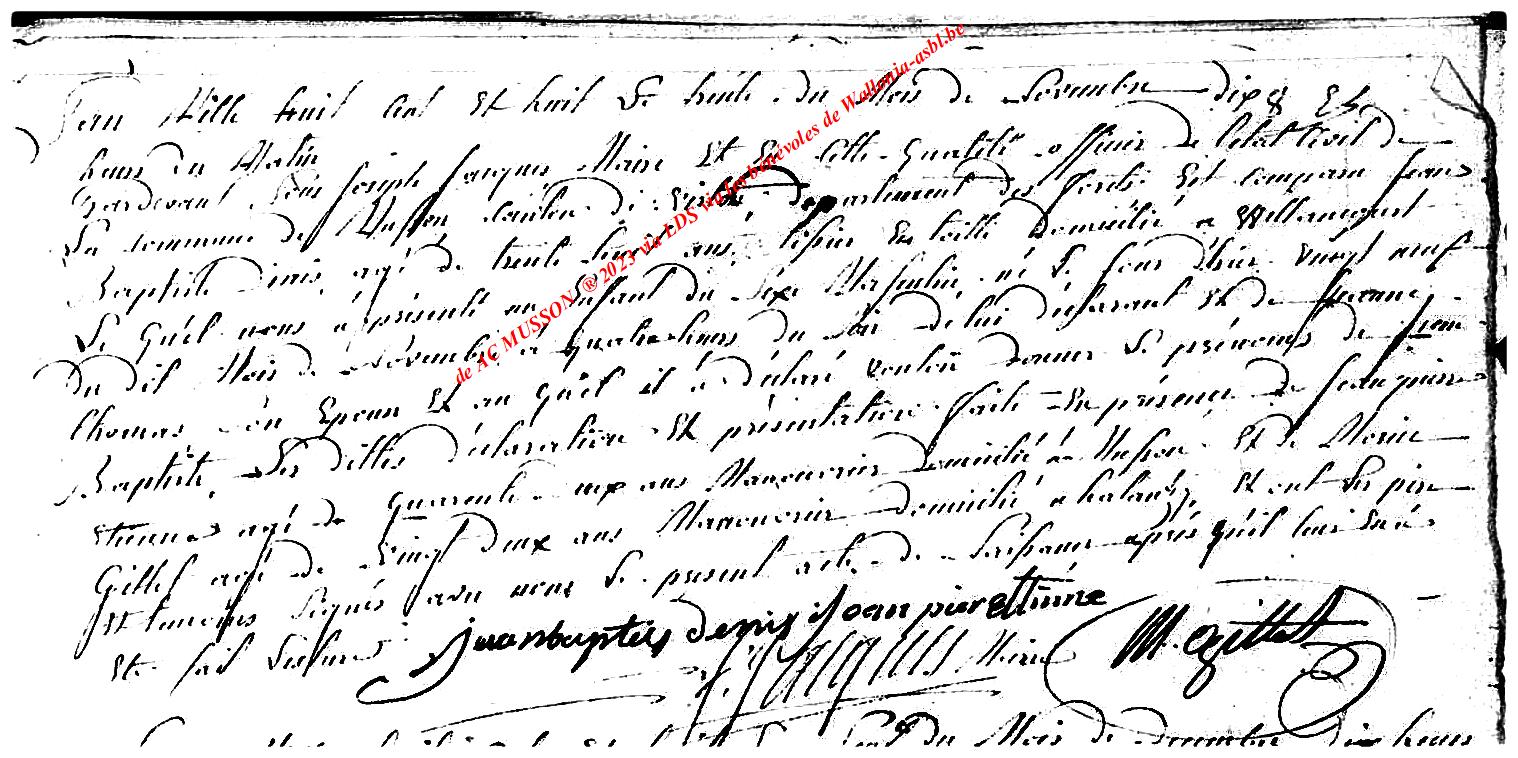 L'an Mille huit Cent Et huit le trente du Mois de Novembre dix
heures du Matin
Pardevant Nous Joseph Jacques Maire Et En Cette qualité officier de l'état Civil de
La commune de Musson Canton de département des forets Est comparu Jean
Baptiste Denis agé de trente ans, En toille domicilié a Willancourt
Le quel nous a présenté un Enfant du Sexe Masculin, né le Jour d'hier vingt neuf
Du dit Mois de Novembre a quatre heures du Soir de lui déclarant Et de Jeanne
thomas, Son Epouse Et au quel il a déclaré vouloir donner Le prénoms de Jean
Baptiste, Les dittes déclaration Et présentation faite En présence de Jean pierre
Etienne agé de quarente ans Manouvrier domicilié a Musson Et de
Gillet agé de Vingt deux ans Manouvrier domicilié a halanzy, Et ont Les pere
Et temoins Signés avec nous Le present acte de Naissance apres qu'il leur En a
Eté fait Lecture
jean baptiste denis Joan pier Etiinne
Jacques Maire M. Gillet
du Mois de Decembre dix heures
de AC MUSSON ® 2023 via LDS via les bénévoles de Wallonia-asbl.be